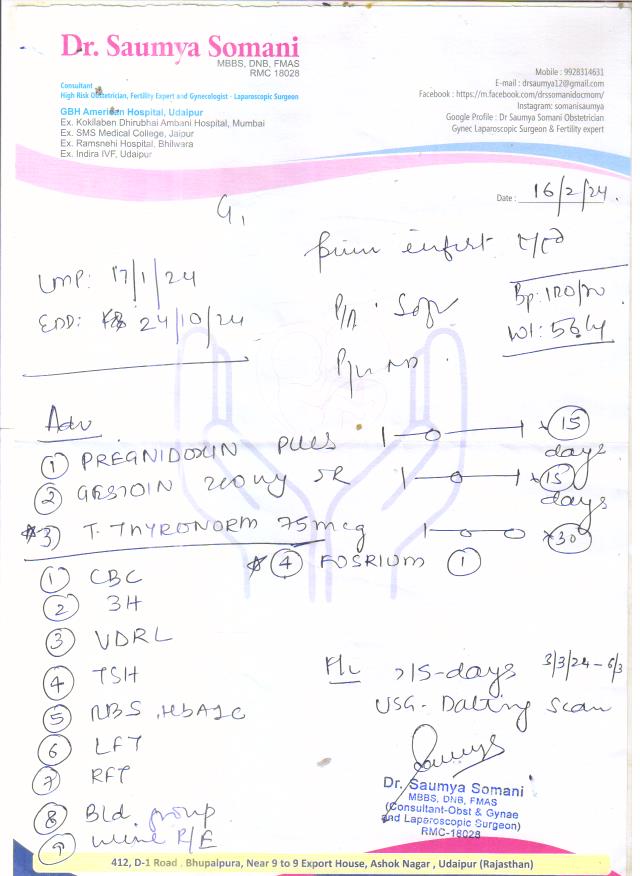 Dr. Saumya Somani
MBBS, DNB, FMAS
RMC 18028
Consultant
High Risk Obstetrician, Fertility Expert and Gynecologist - Laparoscopic Surgeon
GBH American Hospital, Udaipur
Ex. Kokilaben Dhirubhai Ambani Hospital, Mumbai
Ex. SMS Medical College, Jaipur
Ex. Ramsnehi Hospital, Bhilwara
Ex. Indira IVF, Udaipur
Mobile : 9928314631
E-mail : drsaumya12@gmail.com
Facebook : https://m.facebook.com/drssomanidocmom/
Instagram: somanisaumya
Google Profile : Dr Saumya Somani Obstetrician
Gynec Laparoscopic Surgeon & Fertility expert
Date : 16/2/24.
G1
LMP: 17/1/24
EDD: 24/10/24
P/A : Soft
P/V
Bp: 120/70
Wt: 56.4
Adv
① PREGNIDOXIN PLUS 1—0—1 x 15 days
② GESTOIN 200 mg SR 1—0—1 x 15 days
3) T. THYRONORM 75 mcg 1—0—0 x 30
④ FOSRIUM ①
① CBC
② 3H
③ VDRL
④ TSH
⑤ RBS, HbA1C
⑥ LFT
⑦ RFT
⑧ Bld. group
⑨ urine R/E
15-days 3/3/24 - 6/3
USG- Dating Scan
Saumya
Dr. Saumya Somani
MBBS, DNB, FMAS
(Consultant-Obst & Gynae
and Laparoscopic Surgeon)
RMC-18028
412, D-1 Road . Bhupalpura, Near 9 to 9 Export House, Ashok Nagar , Udaipur (Rajasthan)